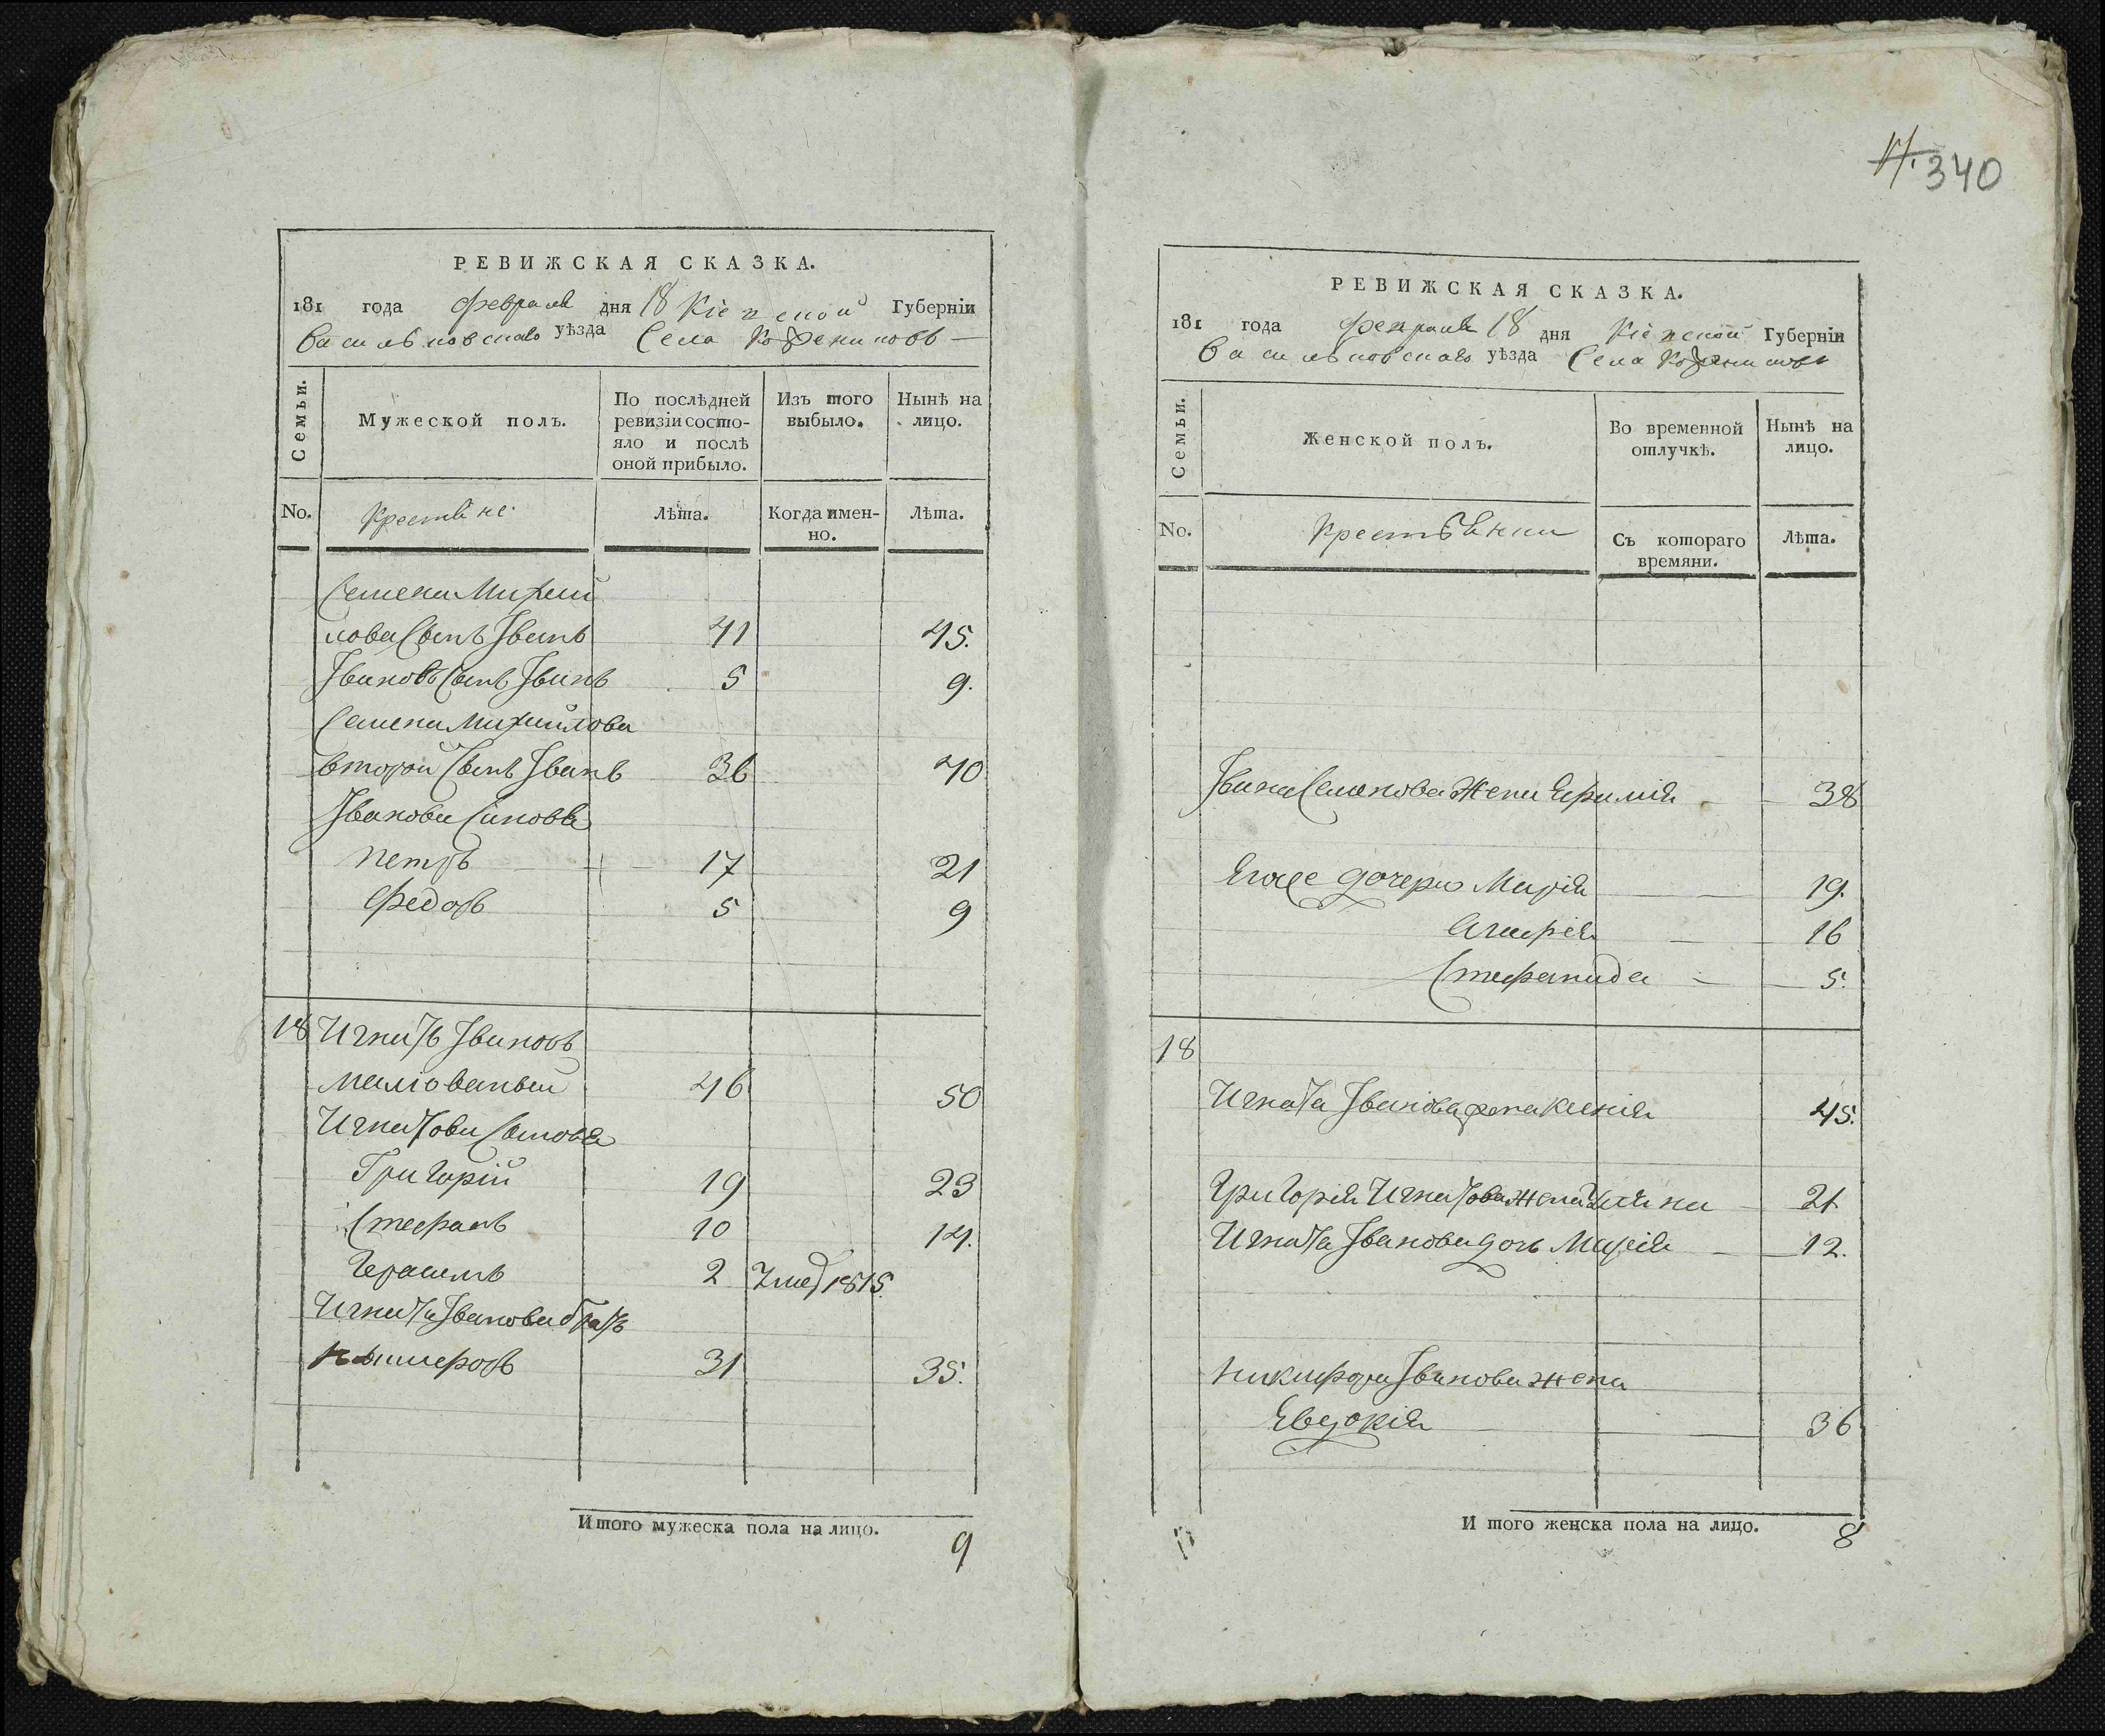 340
РЕВИЖСКАЯ СКАЗКА.
181 года февраля дня 18 Кіевской Губерніи
Васильковскаго уѣзда Села
Семьи.
Мужеской полъ.
По послѣдней ревизіи состояло и послѣ оной прибыло.
Изъ того выбыло.
Нынѣ на лицо.
No.
Крестьяне
Лѣта.
Когда именно.
Лѣта.
Семена Михай
лова Сынъ Іванъ 41 45.
Івановъ Сынъ Іванъ 5 9.
Семена Михайлова
второй Сынъ Іванъ 36 40
Іванова Синовья
Петръ 17 21
Федоръ 5 9
18 Игнатъ Івановъ
Маліованый 46 50
Игнатова Сыновья
Григорій 19 23
Стефанъ 10 14.
Герасимъ 2 умер 1815
Игната Іванова братъ
31 35.
Итого мужеска пола на лицо. 9
РЕВИЖСКАЯ СКАЗКА.
181 года февраля 18 дня Кіевской Губерніи
Васильковскаго уѣзда Села
Семьи.
Женской полъ.
Во временной отлучкѣ.
Нынѣ на лицо.
No.
Крестьянки
Съ котораго времяни.
Лѣта.
Івана Семенова Жена 38
дочери Марія 19.
16
Стефанида 5.
18
Игната Іванова жена Ксенія 45.
Григорія Игнатова жена 21
Игната Іванова дочь Марія 12.
Никифора Іванова жена
Евдокія 36
И того женска пола на лицо. 8